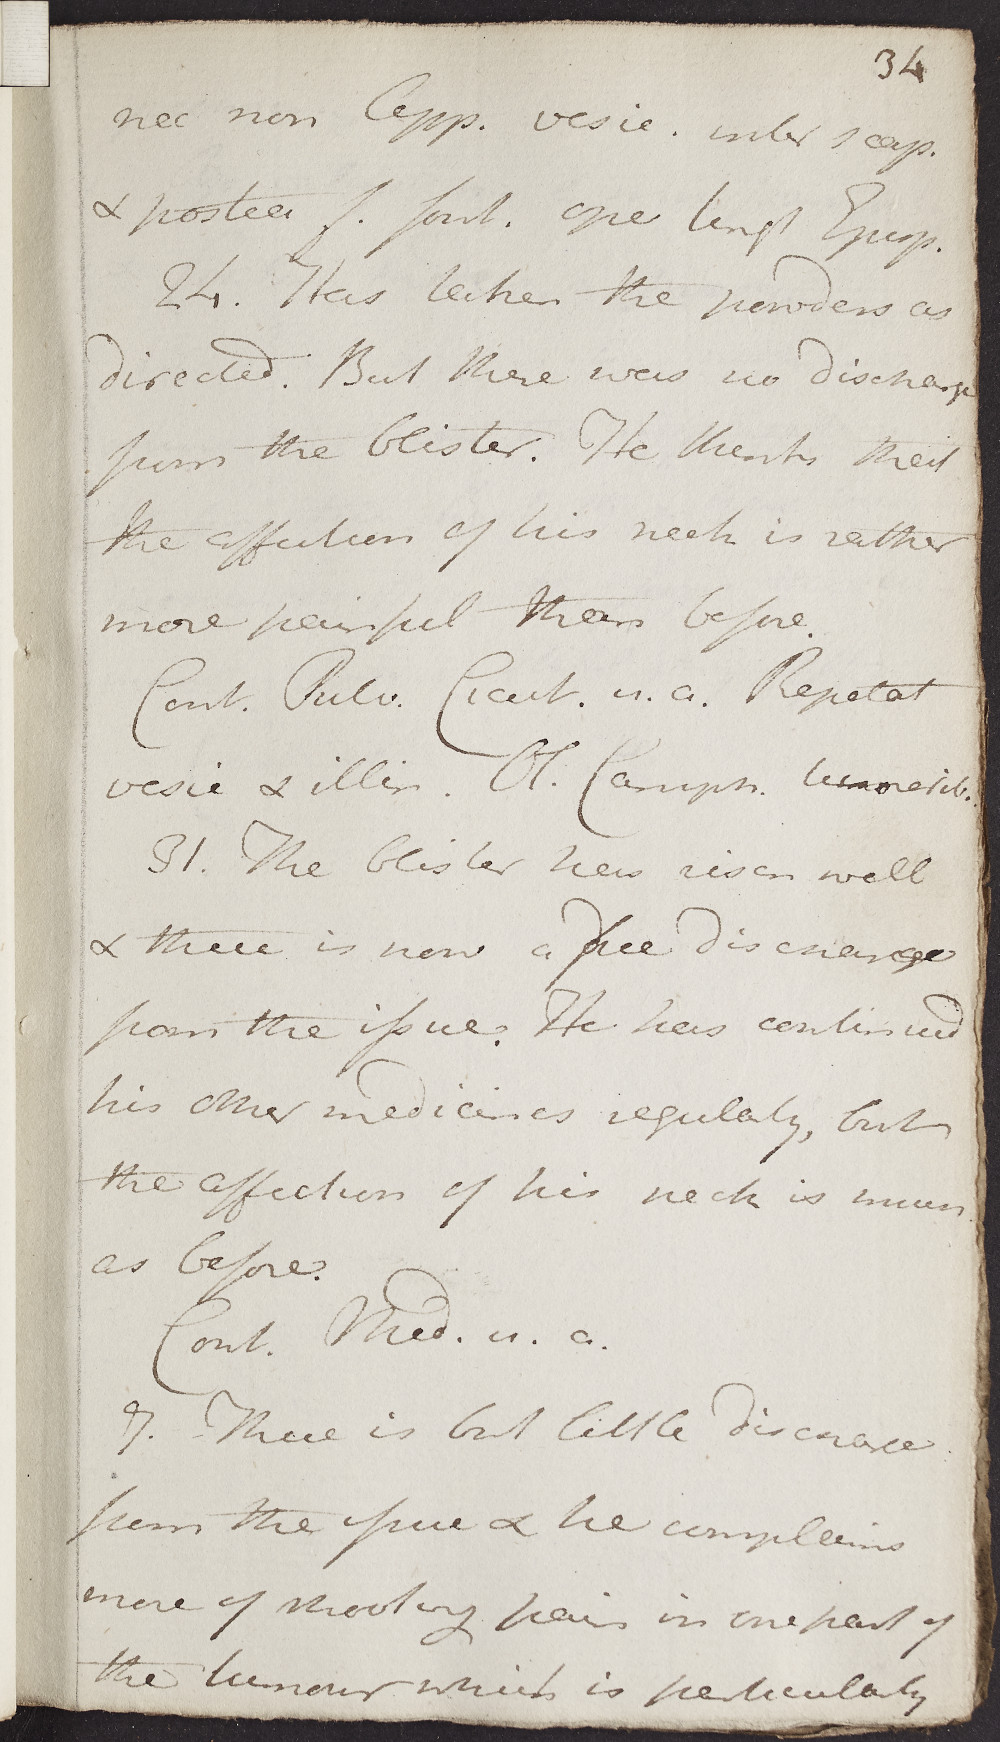 34
nec non app. vesic. inter scap.
& postea f. font. ope Ungt Episp.
24. Has taken the powders as
directed. But there was no discharge
from the blister. He thinks that
the affection of his neck is rather
more painful than before.
Cont. Pulv. Cicut. u. a. Repetat
vesic & illin. Ol. Camph. tumorib.
31. The blister has risen well
& there is now a free discharge
from the issue. He has continued
his other medicines regularly, but
the affection of his neck is much
as before.
Cont. Med. u. a.
7. There is but little discharge
from the issue & he complains
more of shooting pain in one part of
the tumour which is particularly